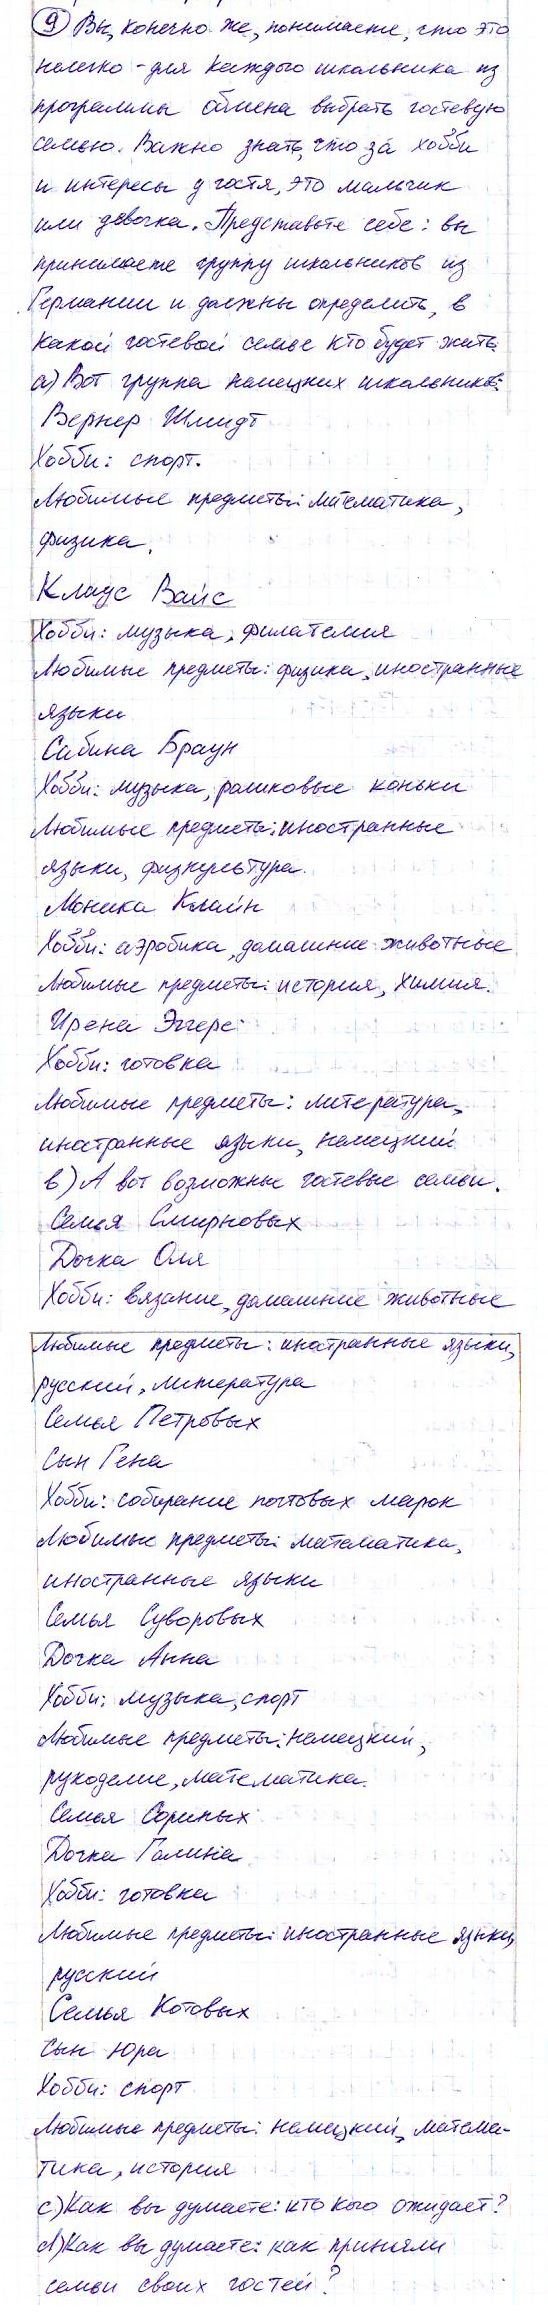 9 Вы, конечно же, понимаете, что это
нелегко - для каждого школьника из
программы обмена выбрать гостевую
семью. Важно знать, что за хобби
и интересы у гостя, это мальчик
или девочка. Представьте себе: вы
принимаете группу школьников из
Германии и должны определить, в
какой гостевой семье кто будет жить.
а) Вот группа немецких школьников:
Вернер Шмидт
Хобби: спорт.
Любимые предметы: математика,
физика.
Клаус Вайс
Хобби: музыка, филателия
Любимые предметы: физика, иностранные
языки
Сабина Браун
Хобби: музыка, роликовые коньки
Любимые предметы: иностранные
языки, физкультура.
Моника Клайн
Хобби: аэробика, домашние животные
Любимые предметы: история, химия.
Ирена Эггерс
Хобби: готовка
Любимые предметы: литература,
иностранные языки, немецкий
в) А вот возможные гостевые семьи.
Семья Смирновых
Дочка Оля
Хобби: вязание, домашние животные
Любимые предметы: иностранные языки,
русский, литература
Семья Петровых
Сын Гена
Хобби: собирание почтовых марок
Любимые предметы: математика,
иностранные языки
Семья Суворовых
Дочка Анна
Хобби: музыка, спорт
Любимые предметы: немецкий,
рукоделие, математика.
Семья Сориных
Дочка Галина
Хобби: готовка
Любимые предметы: иностранные языки,
русский
Семья Котовых
Сын Юра
Хобби: спорт
Любимые предметы: немецкий, матема-
тика, история
с) Как вы думаете: кто кого ожидает?
d) Как вы думаете: как приняли
семьи своих гостей?